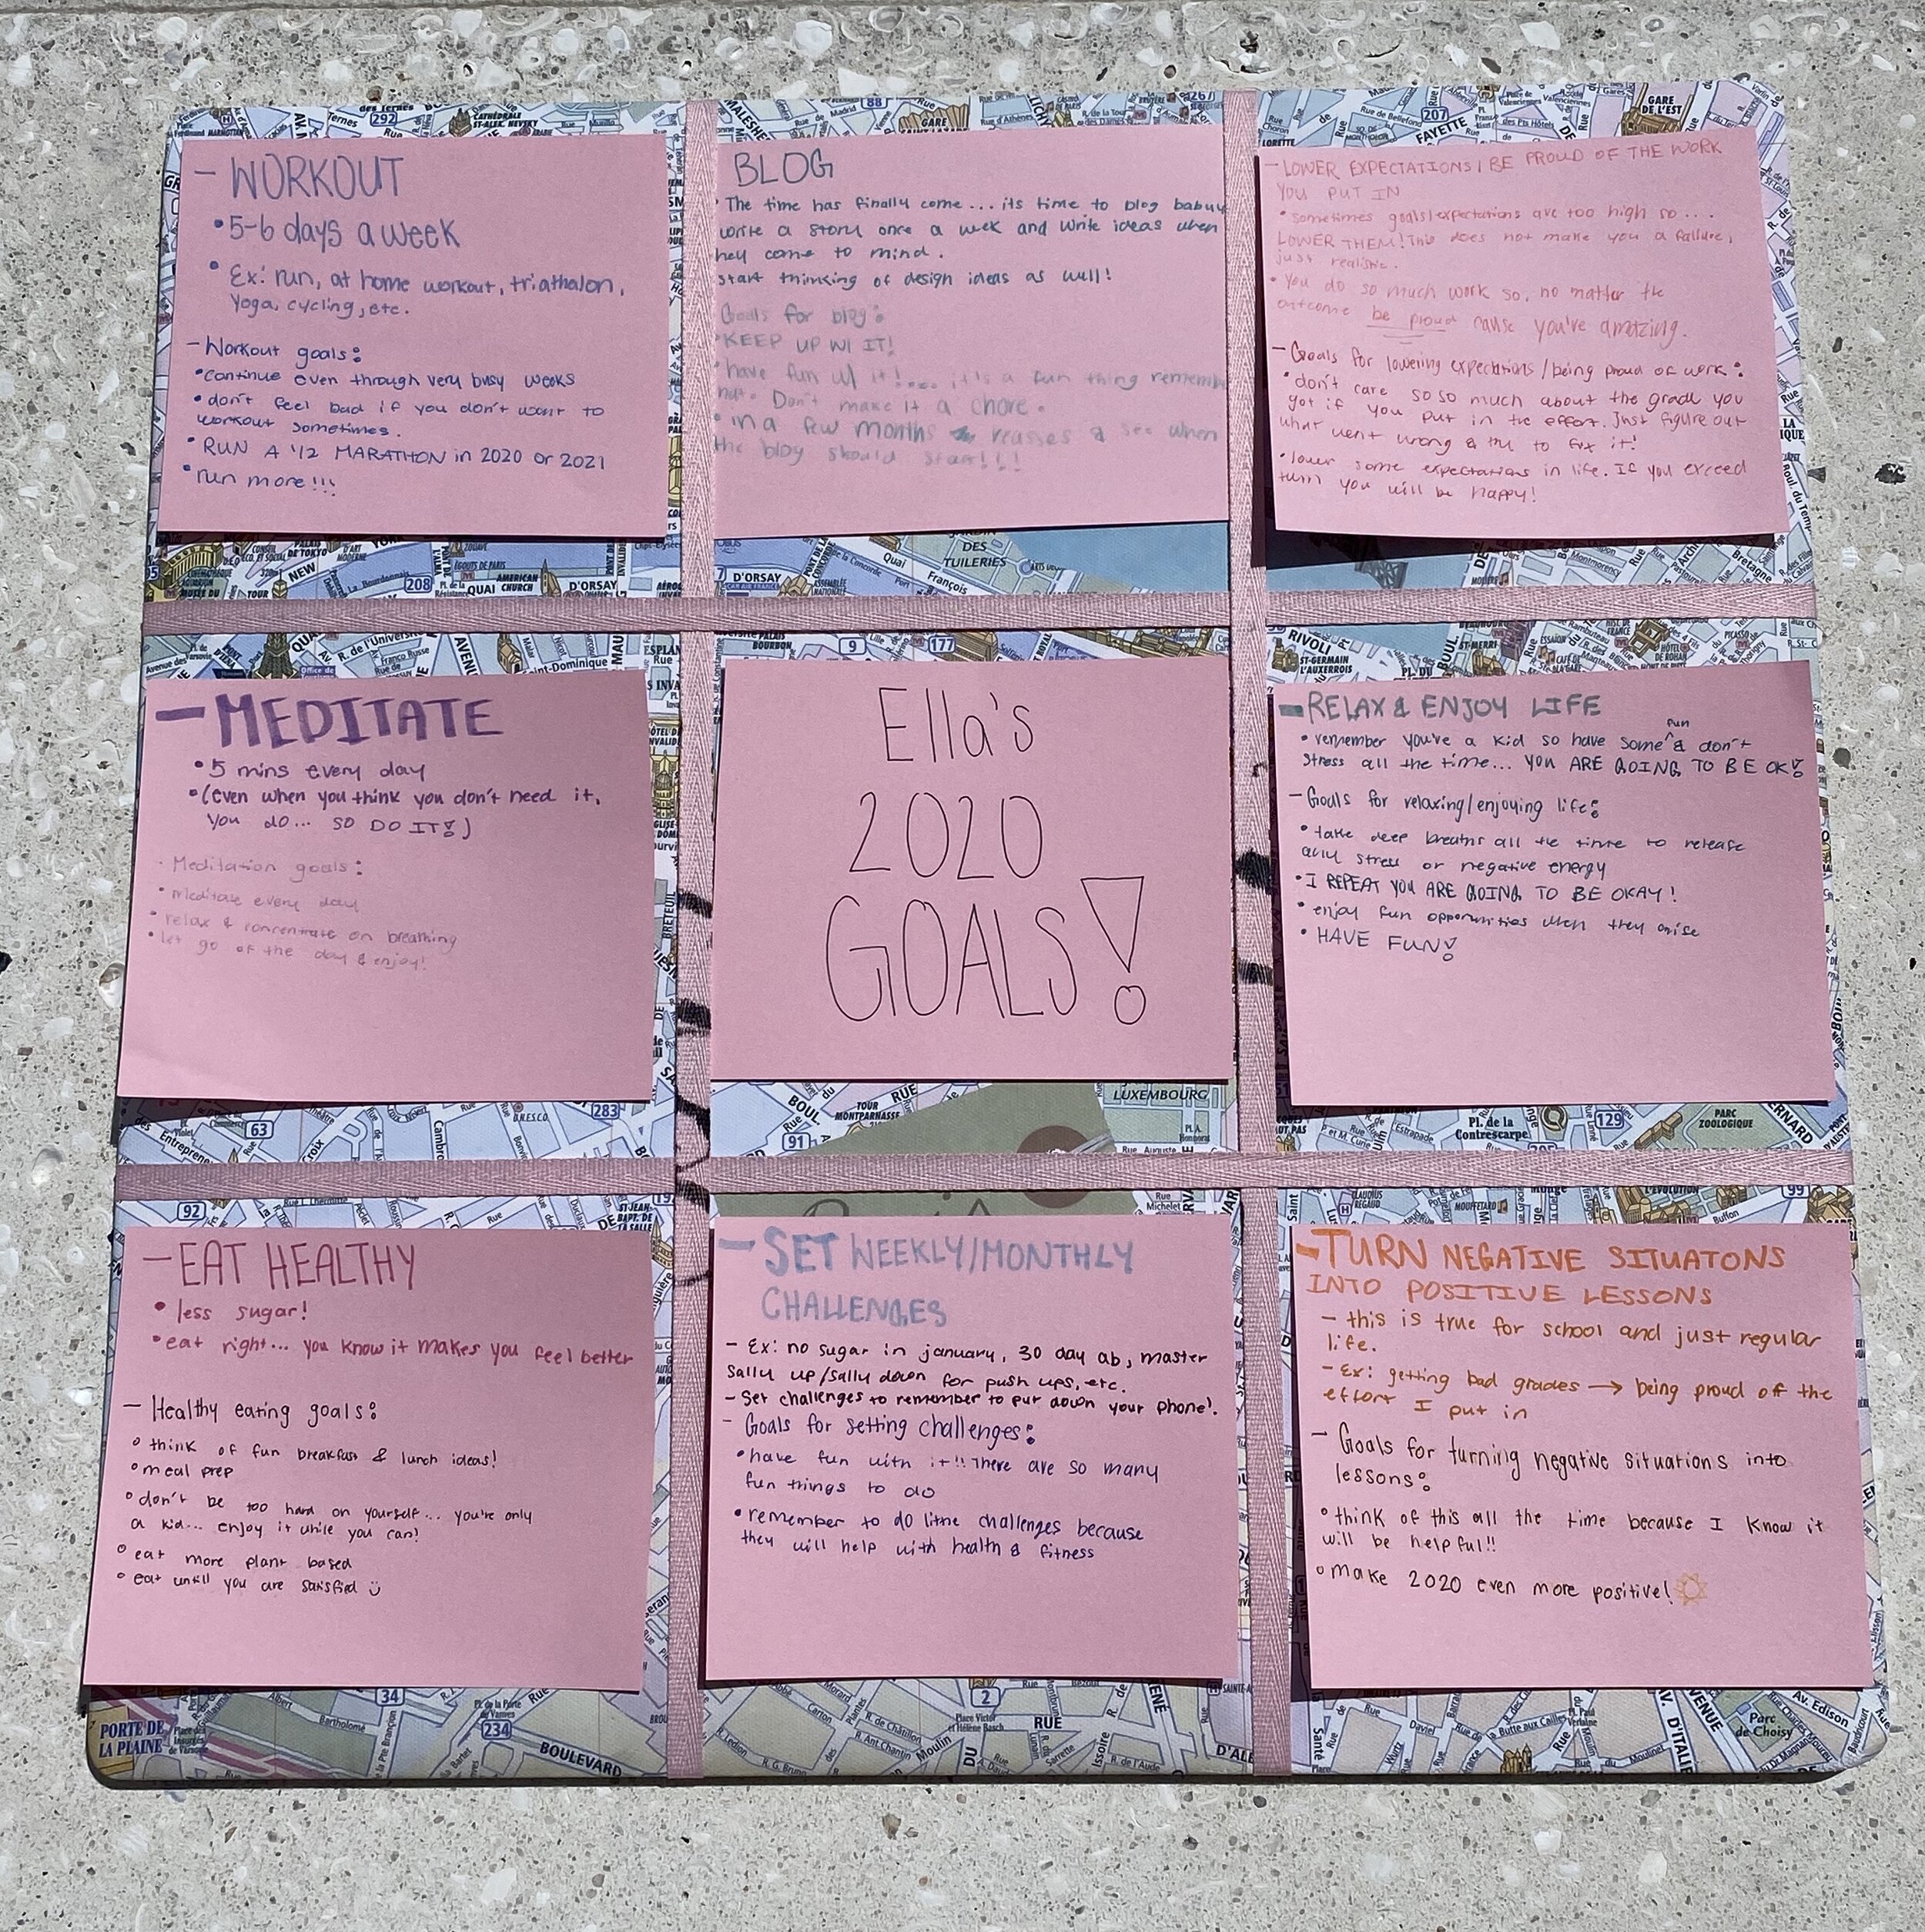 - WORKOUT
• 5-6 days a week
• Ex: run, at home workout, triathalon,
Yoga, cycling, etc.
- Workout goals:
• continue even through very busy weeks
• don't feel bad if you don't want to
workout sometimes.
• RUN A 1/2 MARATHON in 2020 or 2021
• run more!!!
BLOG
• The time has finally come... its time to blog babyy
write a story once a week and write ideas when
they come to mind.
start thinking of design ideas as well!
Goals for blog:
• KEEP UP W/ IT!
• have fun w/ it!.... it's a fun thing remember
that. Don't make it a chore.
• in a few months reasses & see when
the blog should start!!!
- LOWER EXPECTATIONS/BE PROUD OF THE WORK
YOU PUT IN
• sometimes goals/expectations are too high so...
LOWER THEM! This does not make you a failure,
just realistic.
• You do so much work so, no matter the
outcome be proud cause you're amazing.
- Goals for lowering expectations/being proud of work:
• don't care so so much about the grade you
got if you put in the effort. Just figure out
what went wrong & try to fix it!
• lower some expectations in life. If you exceed
them you will be happy!
- MEDITATE
• 5 mins every day
• (even when you think you don't need it,
you do... SO DO IT!)
- Meditation goals:
• meditate every day
• relax & concentrate on breathing
• let go of the day & enjoy!
Ella's
2020
GOALS!
- RELAX & ENJOY LIFE
• remember you're a kid so have some fun & don't
stress all the time... YOU ARE GOING TO BE OK!
- Goals for relaxing/enjoying life:
• take deep breaths all the time to release
any stress or negative energy
• I REPEAT YOU ARE GOING TO BE OKAY!
• enjoy fun opportunities when they arise
• HAVE FUN!
- EAT HEALTHY
• less sugar!
• eat right... you know it makes you feel better
- Healthy eating goals:
• think of fun breakfast & lunch ideas!
• meal prep
• don't be too hard on yourself... you're only
a kid... enjoy it while you can!
• eat more plant based
• eat untill you are satisfied
- SET WEEKLY/MONTHLY
CHALLENGES
- Ex: no sugar in january, 30 day ab, master
sally up/sally down for push ups, etc.
- Set challenges to remember to put down your phone!
- Goals for setting challenges:
• have fun with it!! There are so many
fun things to do
• remember to do little challenges because
they will help with health & fitness
- TURN NEGATIVE SITUATONS
INTO POSITIVE LESSONS
- this is true for school and just regular
life.
- Ex: getting bad grades → being proud of the
effort I put in
- Goals for turning negative situations into
lessons:
• think of this all the time because I know it
will be helpful!!
• make 2020 even more positive!
292
88
GARE
207
FAYETTE
GARE DE
L'EST
NEW
208
AMERICAN
CHURCH
QUAI
D'ORSAY
D'ORSAY
DES
TUILERIES
François
9
177
RIVOLI
ST-GERMAIN
L'AUXERROIS
283
63
BOUL.
TOUR
MONTPARNASSE
RUE
91
LUXEMBOURG
Pl. de la
Contrescarpe
129
PARC
ZOOLOGIQUE
92
99
PORTE DE
LA PLAINE
34
234
BOULEVARD
2
RUE
Parc
de Choisy
Av. Edison